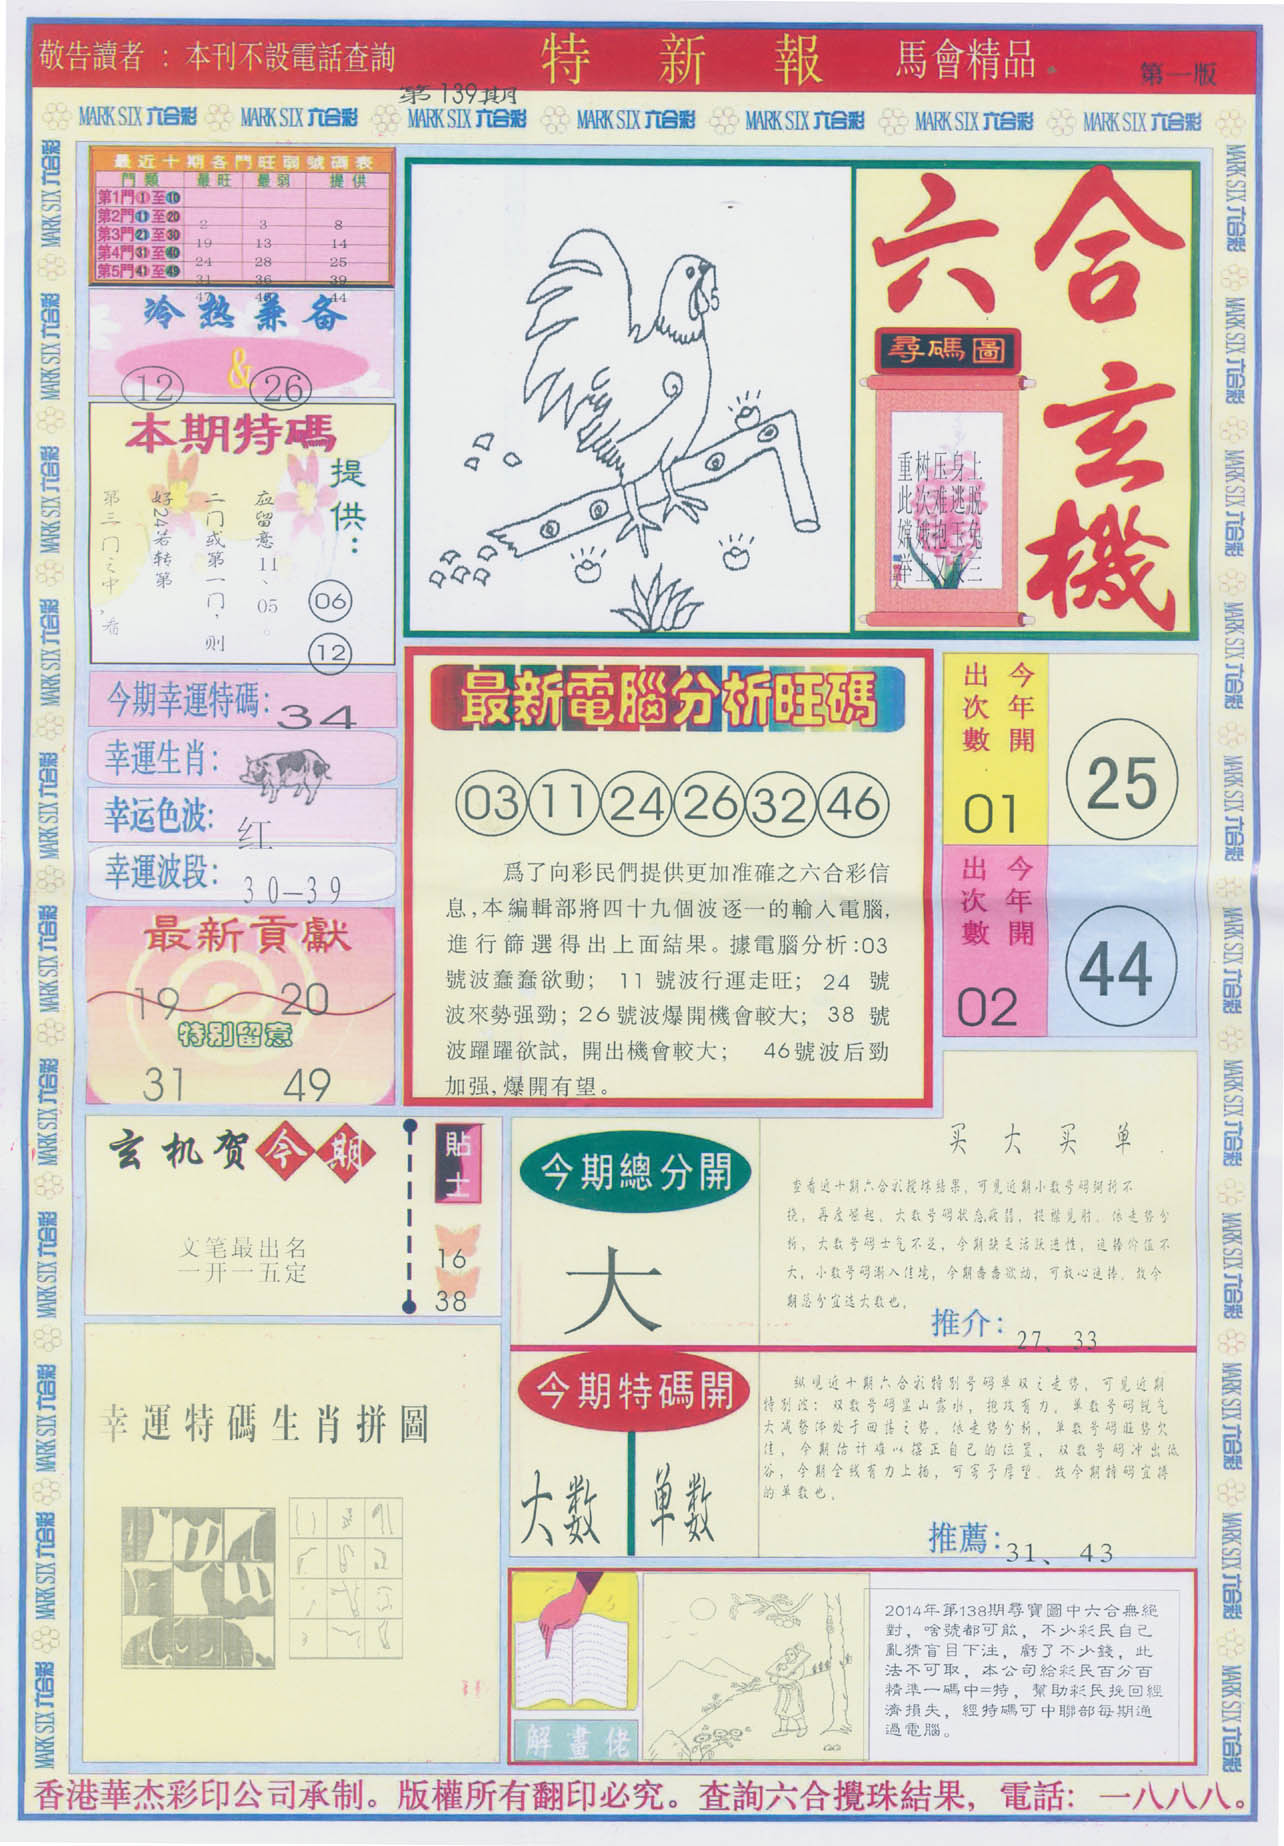 敬告讀者 : 本刊不設電話查詢
特新報
馬會精品
第一版
第139期
MARK SIX 六合彩 MARK SIX 六合彩 MARK SIX 六合彩 MARK SIX 六合彩 MARK SIX 六合彩 MARK SIX 六合彩 MARK SIX 六合彩
最近十期各門旺弱號碼表
門類 最旺 最弱 提供
第1門①至⑩
第2門⑪至⑳
2 3 8
第3門㉑至㉚
19 13 14
第4門㉛至㊵
24 28 25
第5門㊶至㊾
31 36 39
44
冷热兼备
12 & 26
本期特碼
提供：
第三门之中，看
好24若转第
二门或第一门，则
应留意11、05。
06
12
今期幸運特碼: 34
幸運生肖:
幸运色波: 红
幸運波段: 30—39
最新貢獻
19 20
特别留意
31 49
六合玄機
尋碼圖
重树压身上
此次难逃脱
嫦娥抱玉兔
最新電腦分析旺碼
03 11 24 26 32 46
爲了向彩民們提供更加准確之六合彩信
息,本編輯部將四十九個波逐一的輸入電腦,
進行篩選得出上面結果。據電腦分析:03
號波蠢蠢欲動; 11 號波行運走旺; 24 號
波來勢强勁; 26 號波爆開機會較大; 38 號
波躍躍欲試, 開出機會較大; 46號波后勁
加强,爆開有望。
今年開
出次數
01
25
今年開
出次數
02
44
玄机贺今期
文笔最出名
一开一五定
貼士
16
38
今期總分開
大
买大买单
查看近十期六合彩搅珠结果，可见近期小数号码
挠，再度崛起，大数号码状态疲弱，捉襟见肘。依走势分
析，大数号码士气不足，今期缺乏活跃进性，追捧价值不
大，小数号码渐入佳境，今期番番欲动，可放心追捧。故今
期总分宜选大数也。
推介: 27、33
今期特碼開
大数 单数
纵览近十期六合彩特别号码单双之走势，可见近期
特别波：双数号码显山露水，抱攻有力，单数号码锐气
大减
佳，今期估计难以摆正自己的位置，双数号码冲出低
谷，今期全线有力上扬，可寄予厚望。故今期特码宜搏
的单数也。
推薦: 31、43
幸運特碼生肖拼圖
解畫佬
2014年第138期尋寶圖中六合無絕
對，啥號都可能，不少彩民自己
亂猜盲目下注，虧了不少錢，此
法不可取，本公司給彩民百分百
精準一碼中=特，幫助彩民挽回經
濟損失，經特碼可中聯部每期通
過電腦。
香港華杰彩印公司承制。版權所有翻印必究。查詢六合攪珠結果，電話：一八八八。